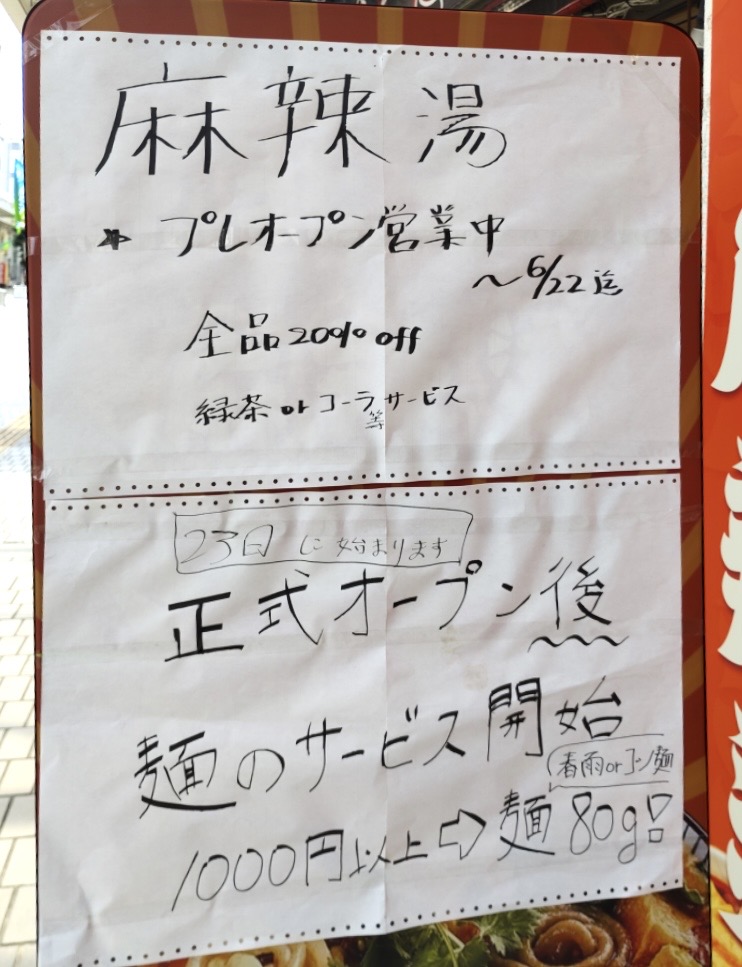 麻辣湯
* プレオープン営業中
～6/22迄
全品20% off
緑茶 or コーラ等サービス
23日に始まります
正式オープン後
麺のサービス開始
春雨orコーン麺
1000円以上⇨麺80g